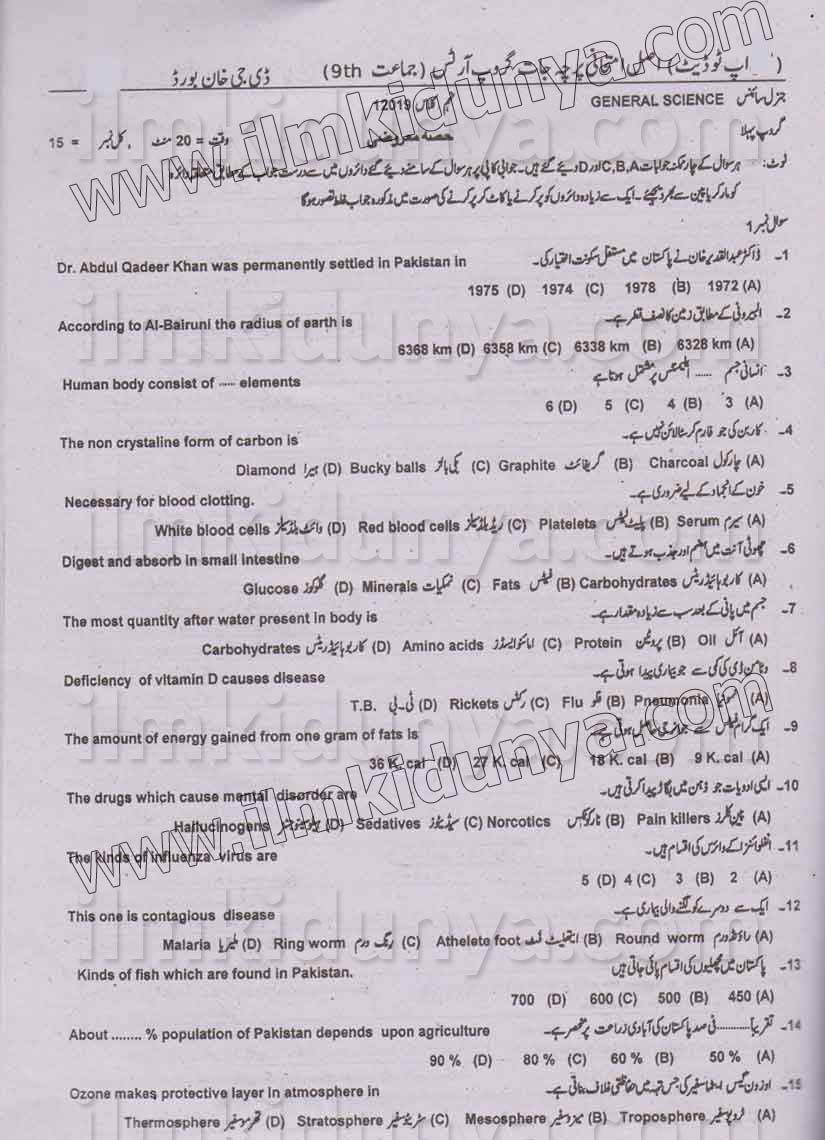 (اپ ٹو ڈیٹ) اصل امتحانی پرچہ جات، گروپ آرٹس (جماعت 9th) ڈی جی خان بورڈ
جنرل سائنس GENERAL SCIENCE 12019
گروپ پہلا حصہ معروضی وقت = 20 منٹ ، کل نمبر = 15
نوٹ: ہر سوال کے چار ممکنہ جوابات C,B,A اور D دیئے گئے ہیں۔ جوابی کاپی پر ہر سوال کے سامنے دیئے گئے دائروں میں سے درست جواب کے مطابق متعلقہ دائرہ
کو مارکر یا پین سے بھر دیجئے۔ ایک سے زیادہ دائروں کو پر کرنے یا کاٹ کر پر کرنے کی صورت میں مذکورہ جواب غلط تصور ہو گا
سوال نمبر 1
1۔ ڈاکٹر عبدالقدیر خان نے پاکستان میں مستقل سکونت اختیار کی۔ Dr. Abdul Qadeer Khan was permanently settled in Pakistan in
1975 (D) 1974 (C) 1978 (B) 1972 (A)
2۔ البیرونی کے مطابق زمین کا نصف قطر ہے۔ According to Al-Bairuni the radius of earth is
6368 km (D) 6358 km (C) 6338 km (B) 6328 km (A)
3۔ انسانی جسم ...... ایلیمنٹس پر مشتمل ہوتا ہے Human body consist of ..... elements
6 (D) 5 (C) 4 (B) 3 (A)
4۔ کاربن کی جو فارم کرسٹلائن نہیں ہے۔ The non crystaline form of carbon is
Diamond ہیرا (D) Bucky balls بکی بالز (C) Graphite گریفائٹ (B) Charcoal چارکول (A)
5۔ خون کے انجماد کے لیے ضروری ہے۔ Necessary for blood clotting.
White blood cells وائٹ بلڈ سیلز (D) Red blood cells ریڈ بلڈ سیلز (C) Platelets پلیٹ لیٹس (B) Serum سیرم (A)
6۔ چھوٹی آنت میں ہضم اور جذب ہوتے ہیں۔ Digest and absorb in small intestine
Glucose گلوکوز (D) Minerals نمکیات (C) Fats فیٹس (B) Carbohydrates کاربوہائیڈریٹس (A)
7۔ جسم میں پانی کے بعد سب سے زیادہ مقدار ہے۔ The most quantity after water present in body is
Carbohydrates کاربوہائیڈریٹس (D) Amino acids امائنو ایسڈز (C) Protein پروٹین (B) Oil آئل (A)
8۔ وٹامن ڈی کی کمی سے جو بیماری پیدا ہوتی ہے۔ Deficiency of vitamin D causes disease
T.B. ٹی۔بی (D) Rickets رکٹس (C) Flu فلو (B) Pneumonia نمونیا (A)
9۔ ایک گرام فیٹس سے جو انرجی حاصل ہوتی ہے۔ The amount of energy gained from one gram of fats is
36 K. cal (D) 27 K. cal (C) 18 K. cal (B) 9 K. cal (A)
10۔ ایسی ادویات جو ذہن میں بگاڑ پیدا کرتی ہیں۔ The drugs which cause mental disorder are
Hallucinogens (D) Sedatives سیڈیٹوز (C) Norcotics نارکوٹکس (B) Pain killers پین کلرز (A)
11۔ انفلوائنزا کے وائرس کی اقسام ہیں۔ The kinds of influenza virus are
5 (D) 4 (C) 3 (B) 2 (A)
12۔ ایک سے دوسرے کو لگنے والی بیماری ہے۔ This one is contagious disease
Malaria ملیریا (D) Ring worm رنگ ورم (C) Athelete foot ایتھلیٹ فٹ (B) Round worm راؤنڈ ورم (A)
13۔ پاکستان میں مچھلیوں کی اقسام پائی جاتی ہیں Kinds of fish which are found in Pakistan.
700 (D) 600 (C) 500 (B) 450 (A)
14۔ تقریباً............ فی صد پاکستان کی آبادی زراعت پر منحصر ہے۔ About ........ % population of Pakistan depends upon agriculture
90 % (D) 80 % (C) 60 % (B) 50 % (A)
15۔ اوزون گیس ایٹماسفیر کی جس تہہ میں حفاظتی غلاف بناتی ہے۔ Ozone makes protective layer in atmosphere in
Thermosphere تھرموسفیر (D) Stratosphere سٹریٹوسفیر (C) Mesosphere میزوسفیر (B) Troposphere ٹروپوسفیر (A)
www.ilmkidunya.com
www.ilmkidunya.com
ilmkidunya.com
ilmkidunya.com
ilmkidunya.com
ilmkidunya.com
ilmkidunya.com
ilmkidunya.com